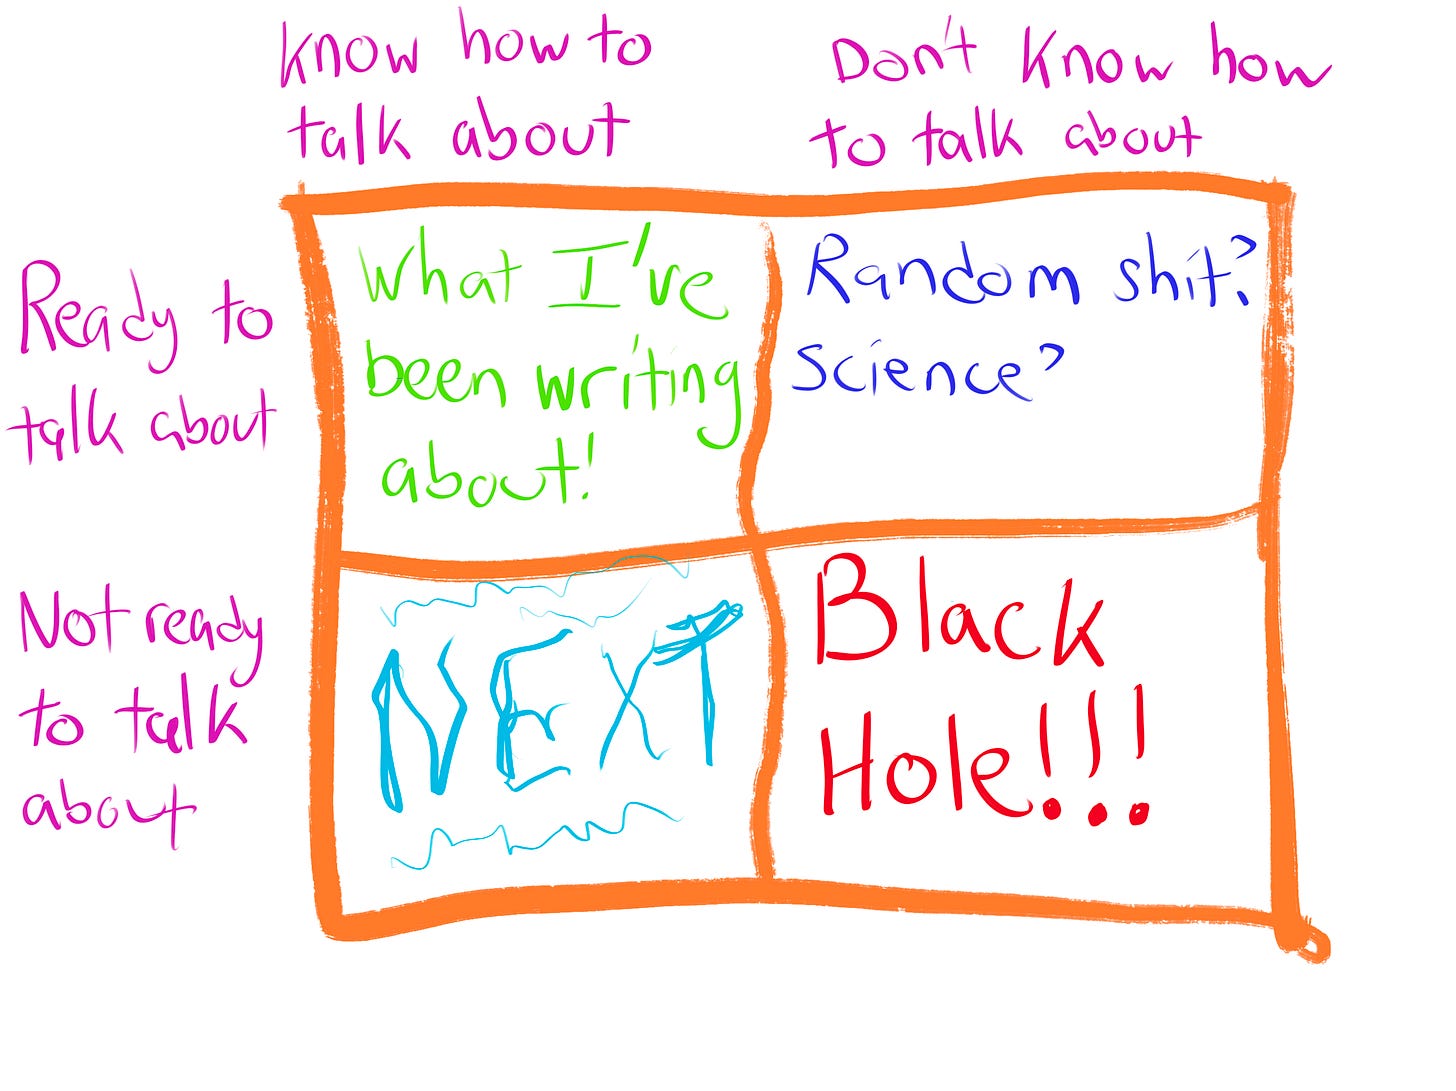 Know how to
talk about
Don't Know how
to talk about
Ready to
talk about
What I've
been writing
about!
Random shit?
Science?
Not ready
to talk
about
NEXT
Black
Hole!!!